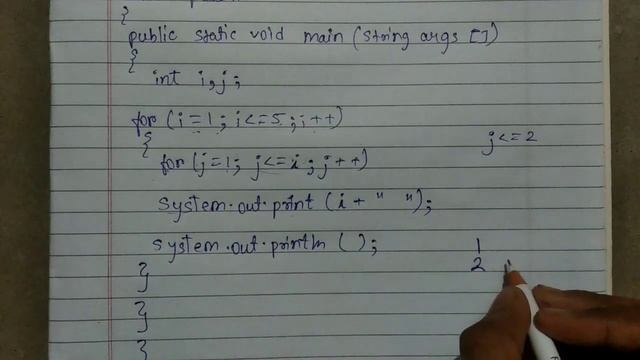 {
public static void main (string args [])
{
int i,j;
for (i=1; i<=5; i++)
{
j<=2
for (j=1; j<=i; j++)
system.out.print (i+ " ");
system.out.println ( );
1
2
}
}
}